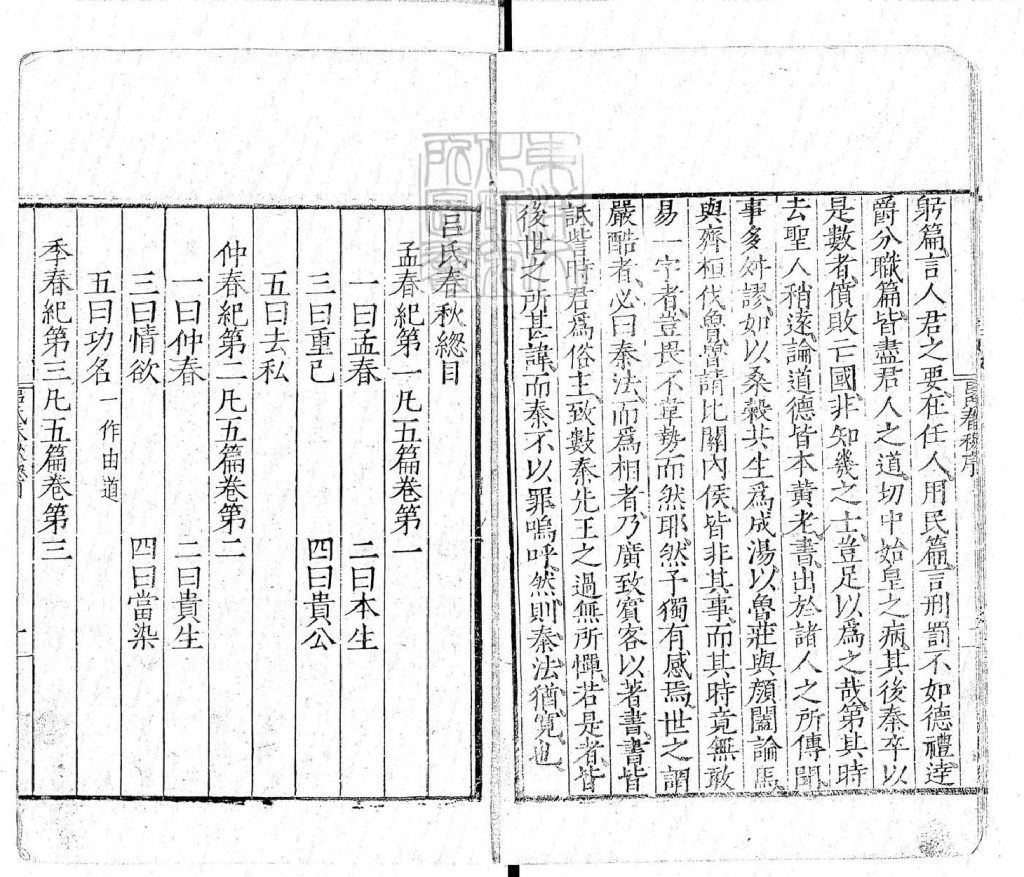 躬篇言人君之要在任人用民篇言刑罰不如德禮逹
爵分職篇皆盡君人之道切中始皇之病其後秦卒以
是數者僨敗亡國非知幾之士豈足以爲之哉第其時
去聖人稍遠論道德皆本黃老書出於諸人之所傳聞
事多舛謬如以桑穀共生爲成湯以魯莊與顏闔論馬
與齊桓伐魯魯請比關內侯皆非其事而其時竟無敢
易一字者豈畏不韋勢而然耶然予獨有感焉世之謂
嚴酷者必曰秦法而爲相者乃廣致賓客以著書書皆
詆訾時君爲俗主致數秦先王之過無所憚若是者皆
後世之所甚諱而秦不以罪嗚呼然則秦法猶寛也
呂氏春秋總目
孟春紀第一凡五篇卷第一
一曰孟春　二曰本生
三曰重己　四曰貴公
五曰去私
仲春紀第二凡五篇卷第二
一曰仲春　二曰貴生
三曰情欲　四曰當染
五曰功名一作由道
季春紀第三凡五篇卷第三